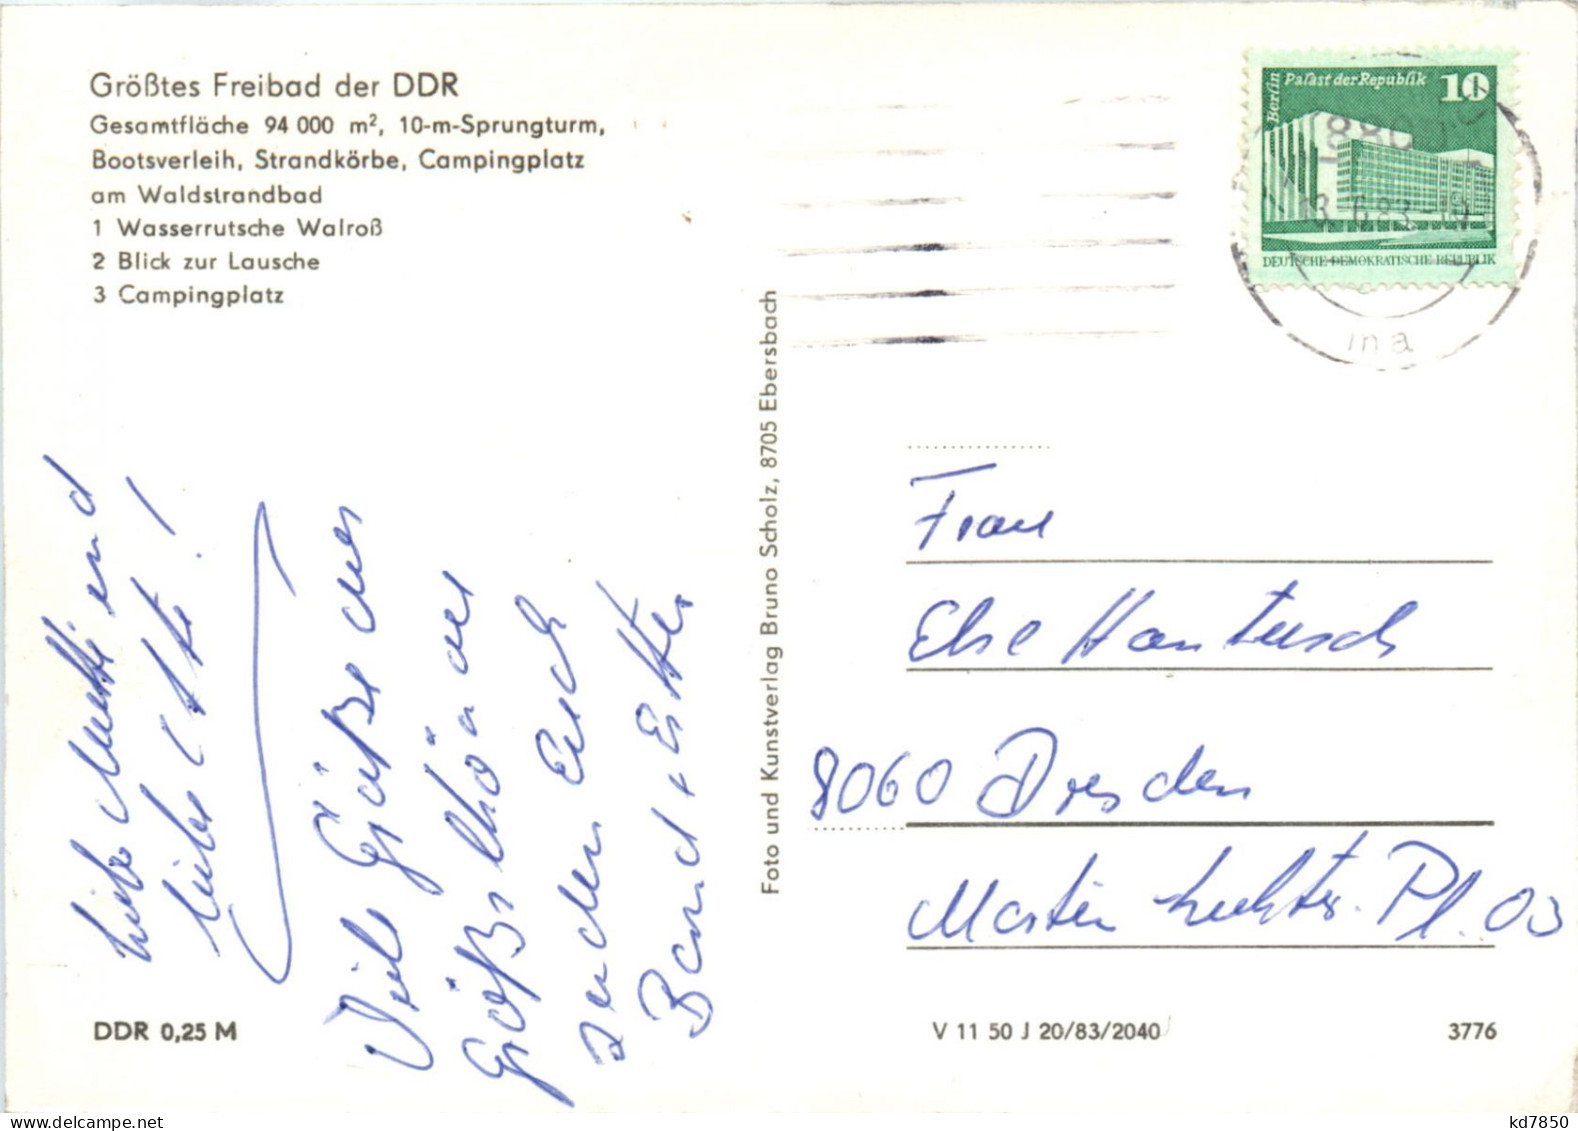 Größtes Freibad der DDR
Gesamtfläche 94 000 m², 10-m-Sprungturm,
Bootsverleih, Strandkörbe, Campingplatz
am Waldstrandbad
1 Wasserrutsche Walroß
2 Blick zur Lausche
3 Campingplatz
Liebe Mutti und
liebe Ute!
Viele Grüße aus
Großschönau
senden Euch
Bernd + Ester
DDR 0,25 M
Foto und Kunstverlag Bruno Scholz, 8705 Ebersbach
Berlin
Palast der Republik 10
DEUTSCHE DEMOKRATISCHE REPUBLIK
Frau
Else Hantusch
8060 Dresden
Martin Luther. Pl. 03
V 11 50 J 20/83/2040
3776
kd7850